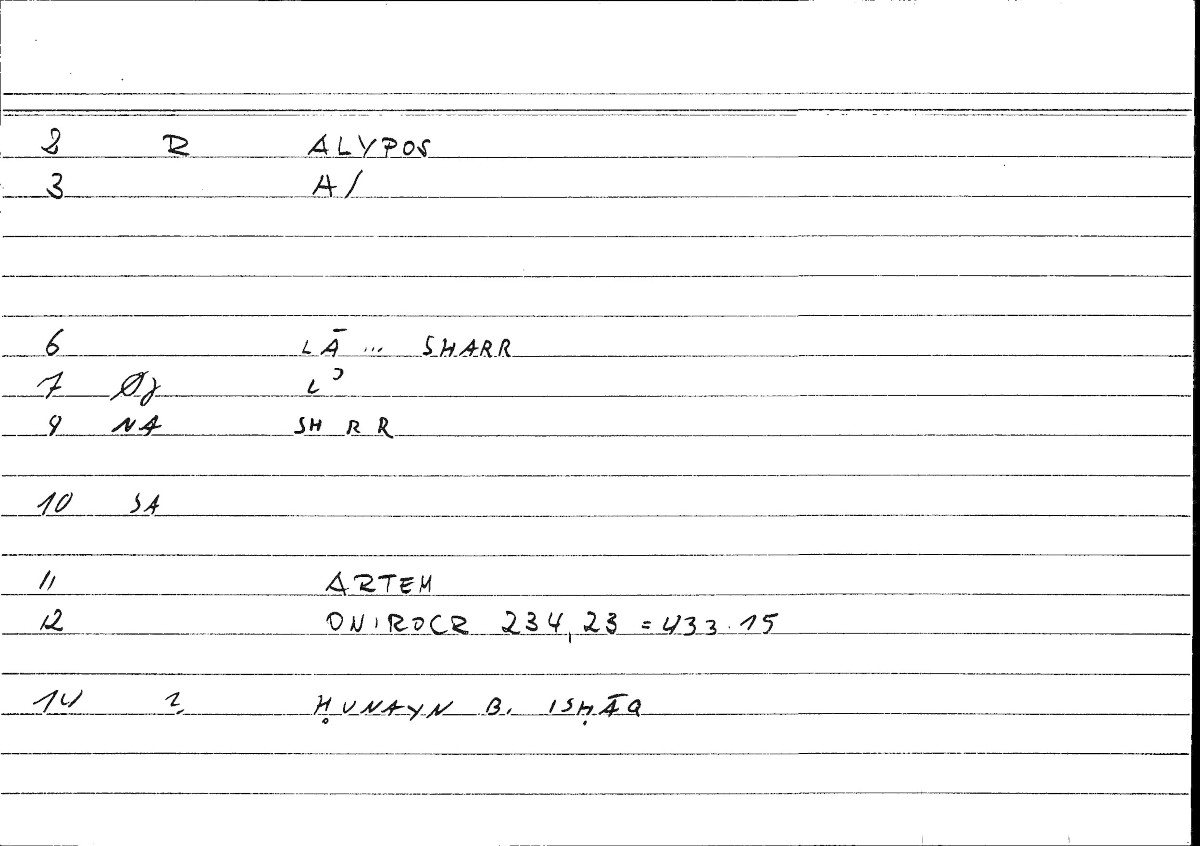 2 R ALYPOS
3 A/
6 LĀ ... SHARR
7 Øj Lʾ
9 NA SH R R
10 SA
11 ARTEM
12 ONIROCR 234,23 = 433.15
14 2. ḤUNAYN B. ISḤĀQ